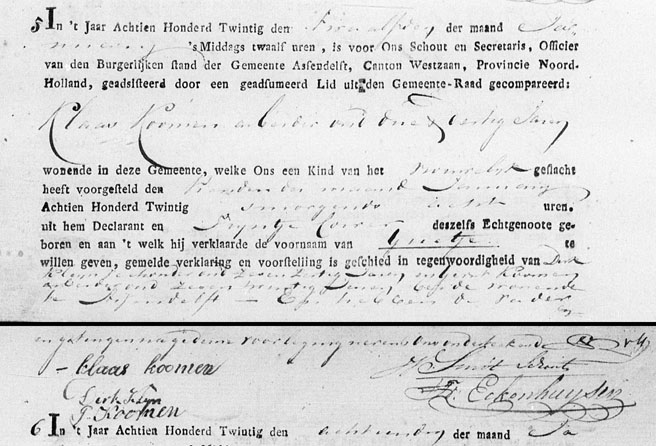 5 In 't Jaar Achtien Honderd Twintig den der maand Ja
nuarij 's Middags twaalf uren, is voor Ons Schout en Secretaris, Officier
van den Burgerlijken stand der Gemeente Assendelft, Canton Westzaan, Provincie Noord-
Holland, geadsisteerd door een geadsumeerd Lid uit den Gemeente-Raad gecompareerd:
Klaas Koomen arbeider oud drie & dertig Jaren
wonende in deze Gemeente, welke Ons een Kind van het vrouwelijk geslacht
heeft voorgesteld den der maand Januarij
Achtien Honderd Twintig smorgens acht uren.
uit hem Declarant en Trijntje deszelfs Echtgenoote ge-
boren en aan 't welk hij verklaarde de voornaam van Guurtje te
willen geven, gemelde verklaring en voorstelling is geschied in tegenwoordigheid van Dirk
Klijn oud zeven Jaren, en Gerrit Koomen
arbeider oud zeven twintig Jaren, de wonende
te Assendelft — En hebben de vader
en getuigen na gedane voorlezing nevens Ons onderteekend
- Claas koomen J. Smidt Schout
Derk Klyn
G. Koomen Eckenhuysen
6 In 't Jaar Achtien Honderd Twintig den der maand Ja